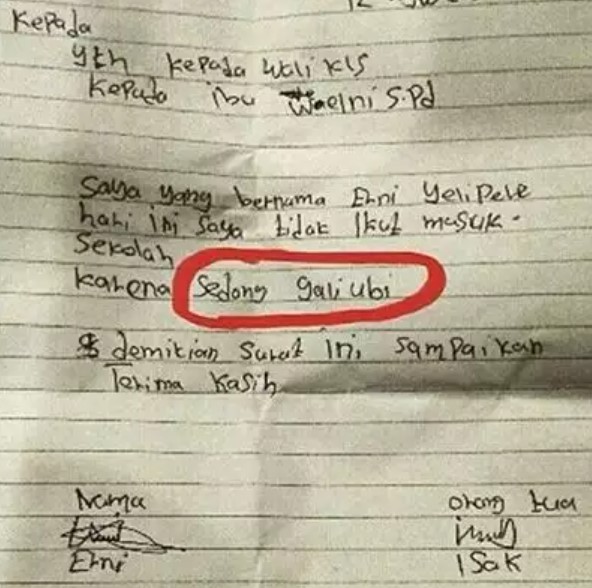 Kepada
Yth Kepada Wali Kls
Kepada ibu Waelni S.Pd
Saya yang bernama Erni Yelipele
hari ini saya tidak Ikut masuk.
Sekolah
karena sedong gali ubi
demikian surat ini, sampaikan
Terima Kasih
Nama
orang tua
Erni
ISak